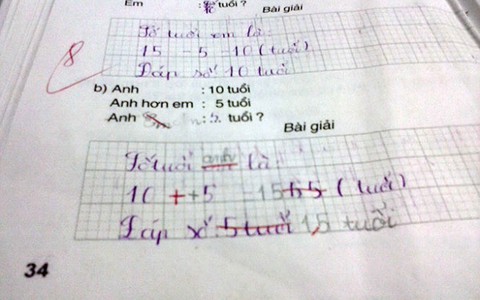 Em : tuổi ?
Bài giải
Số tuổi em là
15 - 5 = 10 (tuổi)
Đáp số 10 tuổi
8
b) Anh : 10 tuổi
Anh hơn em : 5 tuổi
Anh : tuổi ?
Bài giải
Số tuổi anh là
10 + 5 = 15 (tuổi)
Đáp số 5 tuổi 15 tuổi
34